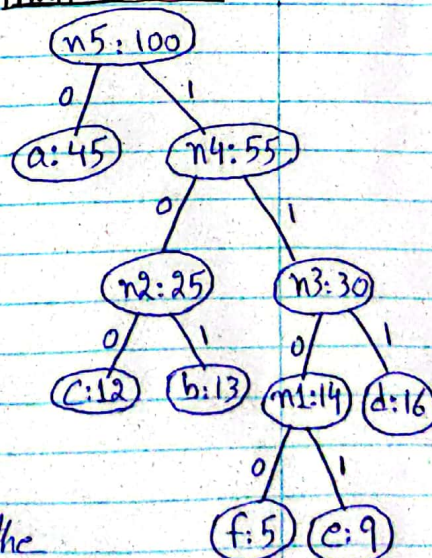 n5:100
0 1
a:45 n4:55
0 1
n2:25 n3:30
0 1 0 1
C:12 b:13 n1:14 d:16
0 1
the
f:5 e:9